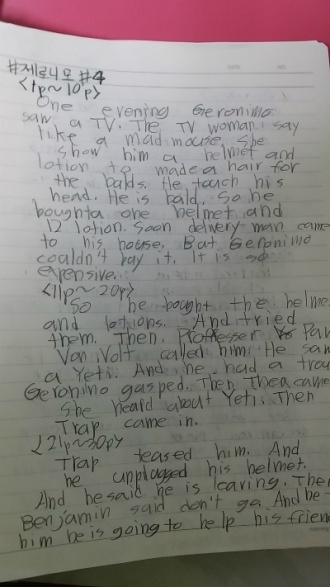 #제로니모 #4
<1p~10p>
One evening Geronimo
saw a TV. The TV woman say
like a mad mouse. She
show him a helmet and
lotion to made a hair for
the balds. He touch his
head. He is bald. So he
boughta one helmet and
12 lotion. Soon delivery man came
to his house. But Geronimo
couldn't pay it. It is so
epensive.
<11p~20p>
So he bought the helme
and lotions. And tried
them. Then, Proffesser
Van Volt called him. He saw
a Yeti. And he had a tra
Geronimo gasped. Then Thea came
She heard about Yeti. Then
Trap came in.
<21p~30p>
Trap teased him. And
he unplugged his helmet.
And he said he is leaving. The
Benjamin said don't go. And he
him he is going to help his frien